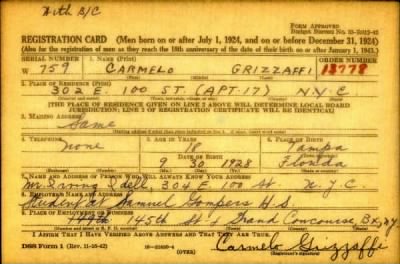 With B/C
Form Approved
REGISTRATION CARD (Men born on or after July 1, 1924, and on or before December 31, 1924)
(Also for the registration of men as they reach the 18th anniversary of the date of their birth on or after January 1, 1943.)
SERIAL NUMBER 1. NAME (Print) ORDER NUMBER
W 759 CARMELO GRIZZAFFI 13778
2. PLACE OF RESIDENCE (Print)
302 E 100 ST. (APT. 17) N.Y.C.
[THE PLACE OF RESIDENCE GIVEN ON LINE 2 ABOVE WILL DETERMINE LOCAL BOARD
JURISDICTION; LINE 2 OF REGISTRATION CERTIFICATE WILL BE IDENTICAL]
3. MAILING ADDRESS
Same
4. TELEPHONE 5. AGE IN YEARS 6. PLACE OF BIRTH
none 18 Tampa
9 30 1928 Florida
7. NAME AND ADDRESS OF PERSON WHO WILL ALWAYS KNOW YOUR ADDRESS
Mr Irving Idell, 304 E 100 St. N.Y.C.
8. EMPLOYER'S NAME AND ADDRESS
Student at Samuel Gompers H.S.
9. PLACE OF EMPLOYMENT OR BUSINESS
145th St & Grand Concourse, Bx, N.Y.
I AFFIRM THAT I HAVE VERIFIED ABOVE ANSWERS AND THAT THEY ARE TRUE.
DSS Form 1 (Rev. 11-16-42) (OVER) Carmelo Grizzaffi
(Registrant's signature)